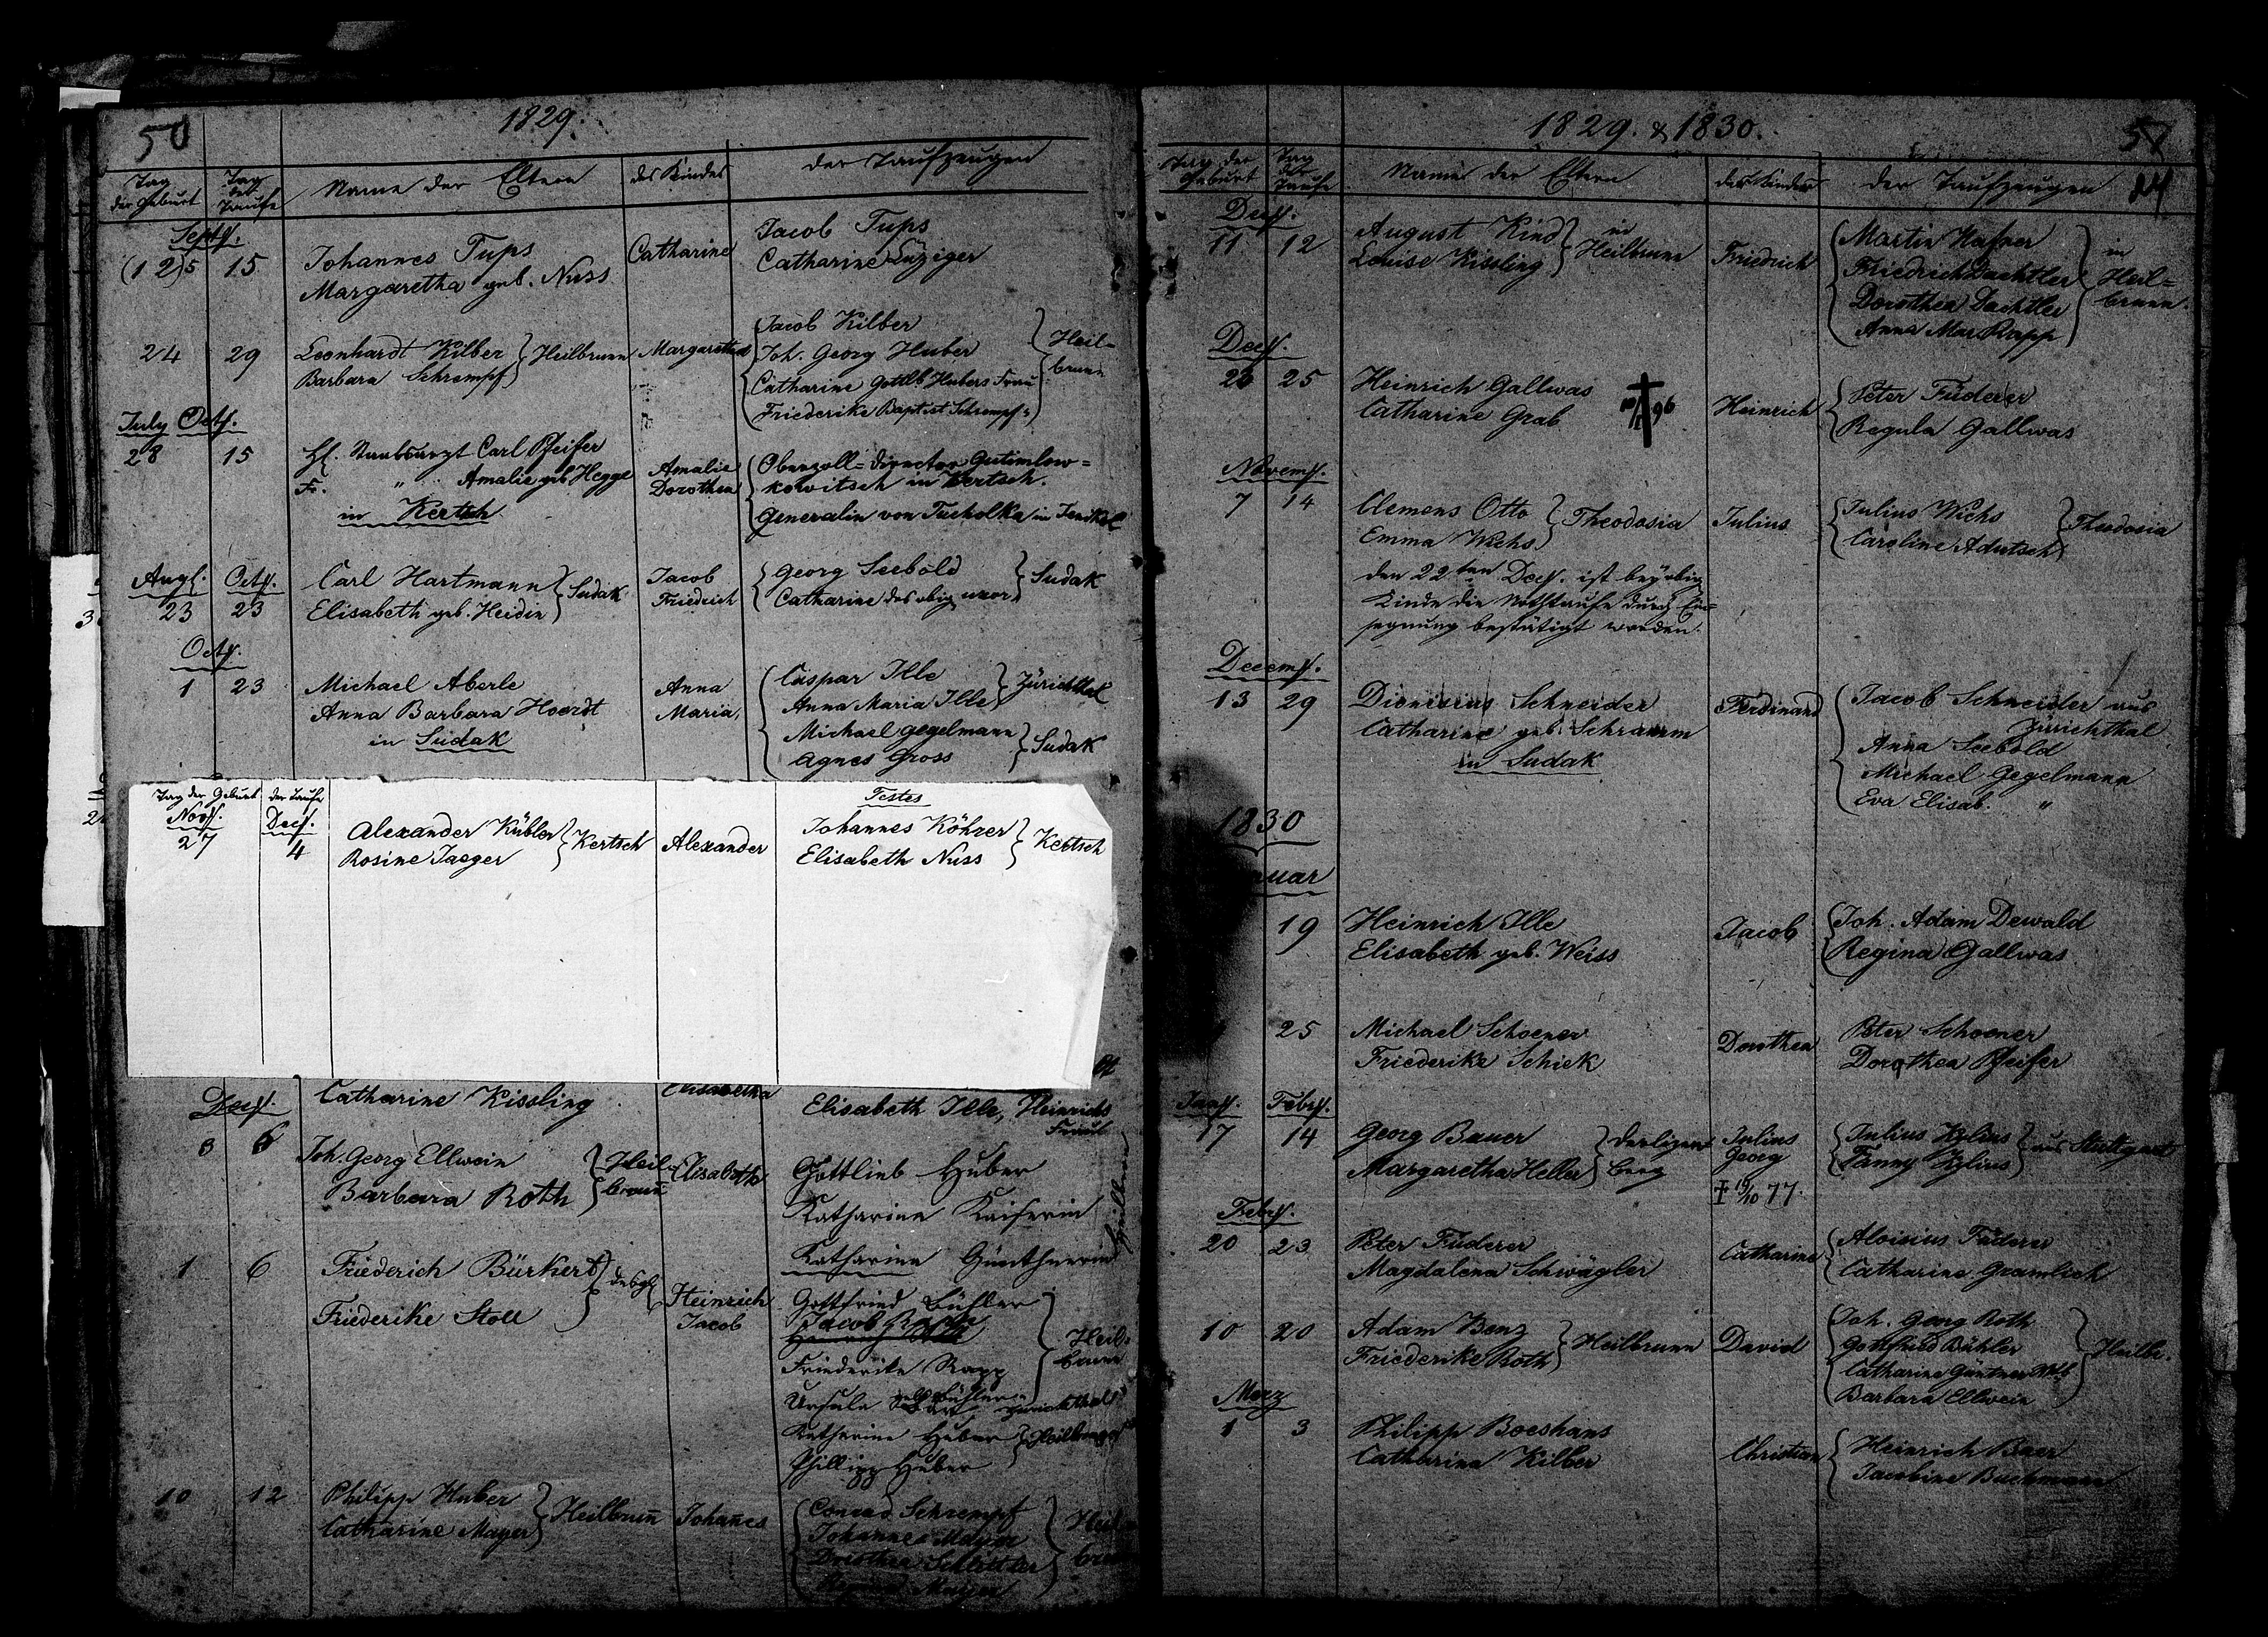 50
1829.
Tag der Geburt
Tag der Taufe
Name der Eltern
des Kindes
der Taufzeugen
Septbr.
(12)5 15
Johannes Tups
Margaretha geb. Nuss
Catharine
Jacob Tups
Catharine Lüziger
24 29
Leonhardt Kilber
Barbara Schrempf
Heilbrunn
Margaretha
Jacob Kilber
Joh. Georg Huber
Catharine Gottlb Hubers Frau
Friederike Baptist Schrempf "
Heil-
brunn
July Octbr.
28 15
H. Stabsarzt Carl Pfeifer
Fr. " Amalie geb. Hegge
in Kertsch
Amalie
Dorothea
Oberzoll-director Gutimlow-
kowitsch in Kertsch.
Generalin von Tucholka in
Augt. Octbr.
23 23
Carl Hartmann
Elisabeth geb. Heidin
Sudak
Jacob
Friedrich
Georg Seebold
Catharine des obig. uxor
Sudak
Octbr.
1 23
Michael Aberle
Anna Barbara Hoerdt
in Sudak
Anna
Maria,
Caspar Ille
Anna Maria Ille
Zürichthal
Michael Gegelmann
Agnes Gross
Sudak
Tag der Geburt
der Taufe
Testes
Novbr.
27
Decbr.
4
Alexander Kübler
Rosine Jaeger
Kertsch
Alexander
Johannes Köhrer
Elisabeth Nuss
Kertsch
Catharine Kissling
Elisabetha
Elisabeth Ille, Heinrichs
Frau
Decbr.
3 6
Joh. Georg Ellwein
Barbara Roth
Heil-
brunn
Elisabeth
Gottlieb Huber
Katharina Kaiserin
Katharina Günthnerin
Heilbrun
1 6
Friederich Bürkert
Friederike Stoll
desgl
Heinrich
Jacob
Gottfried Bühler
Jacob Rapp
Friederike Rapp
Ursula
Heil-
brunn
Katharina Huber
Phillipp Huber
Heilbrunn
10 12
Philipp Huber
Catharine Mayer
Heilbrun̄
Johan̄es
Conrad Schrempf
Johannes Mayer
Dorothea Schlottler
Mayer
Heil-
brunn
1829. & 1830.
57
24
Tag der Geburt
Tag der Taufe
Name der Eltern
des Kindes
der Taufzeugen
Decbr.
11 12
August Kind
Louise Kissling
in
Heilbrunn
Friedrich
Martin Hafner
Friedrich Dachtler
Dorothea Dachtler
Anna Mar. Rapp
in
Heil-
brunn.
Decbr.
23 25
Heinrich Gallwas
Catharine Grab
96
Heinrich
Peter Fuderer
Regula Gallwas
Novembr.
7 14
Clemens Otto
Emma Wichs
Theodosia
Julius
Julius Wichs
Caroline Adutsch
Theodosia
den 22ten Decbr. ist bey obig.
Kinde die Nothtaufe durch Ein-
segnung bestätigt worden.
Decembr.
13 29
Dionisius Schneider
Catharine geb. Schramm
in Sudak
Ferdinand
Jacob Schneider aus
Zürichthal
Anna Seebold
Michael Gegelmann
Eva Elisab. "
1830
uar
19
Heinrich Ille
Elisabeth geb. Weiss
Jacob
Joh. Adam Dewald
Regina Gallwas
25
Michael Schoener
Friederike Schick
Dorothea
Peter Schoener
Dorothea Pfeifer
Janr. Febr.
17 14
Georg Bauer
Margaretha Heller
berg
Julius
Georg
† 19/10 77.
Julius Xylius
Fanny Xylius
aus Stuttgart
Febr.
20 23
Peter Fuderer
Magdalena Schwägler
Catharine
Aloisius Fuderer
Catharine Gramlich
10 20
Adam Benz
Friederike Roth
Heilbrunn
David
Joh. Georg Roth
Gottfried Bühler
Catharine Güntner Wtb
Barbara Ellwein
Heilbr.
Merz
1 3
Philipp Boeshans
Catharina Kilber
Christian
Heinrich Baer
Jacobine Buchmann